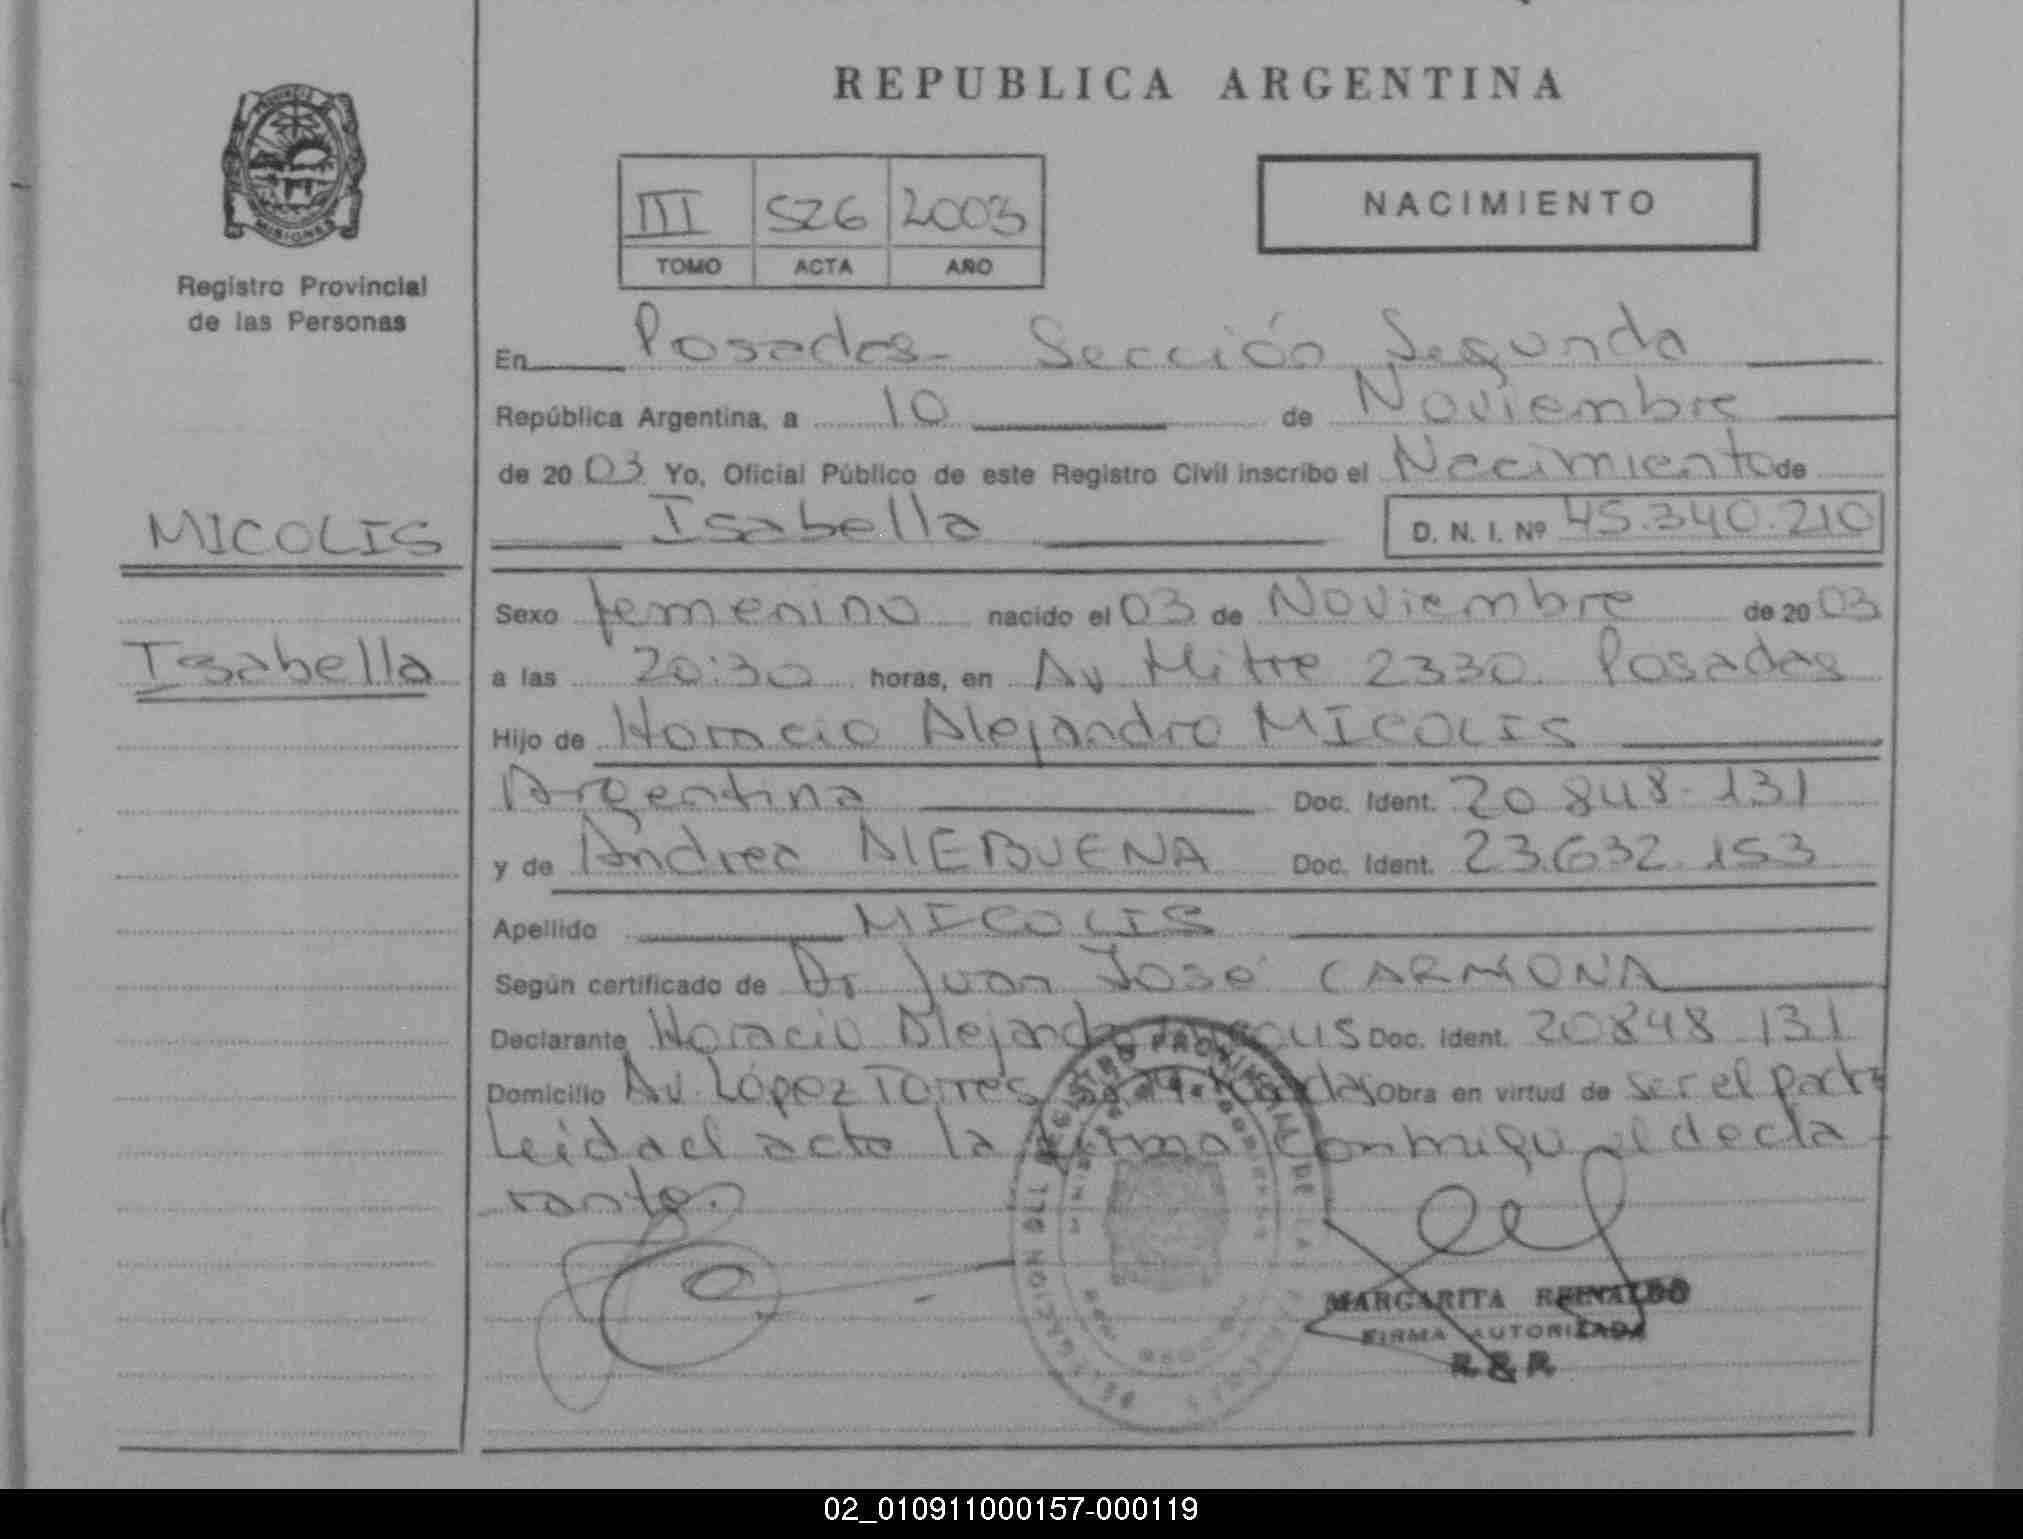 REPUBLICA ARGENTINA
PROVINCIA
MISIONES
Registro Provincial
de las Personas
III 526 2003
TOMO ACTA AÑO
NACIMIENTO
En Posadas - Sección Segunda
República Argentina, a 10 de Noviembre
de 20 03 Yo, Oficial Público de este Registro Civil inscribo el Nacimiento de
MICOLIS
Isabella
Isabella D. N. I. Nº 45.340.210
Sexo femenino nacido el 03 de Noviembre de 20 03
a las 20:30 horas, en Av Mitre 2330. Posadas
Hijo de Horacio Alejandro MICOLIS
Argentina Doc. Ident. 20.848.131
y de Andrea Doc. Ident. 23.632.153
Apellido MICOLIS
Según certificado de Dr Juan José CARMONA
Declarante Horacio Alejandro MICOLIS Doc. Ident. 20848.131
Domicilio Av. López Torres Posadas Obra en virtud de ser el padre
Leida el acta la firma conmigo el decla-
rante.
MARGARITA REINALDO
FIRMA AUTORIZADA
02_010911000157-000119